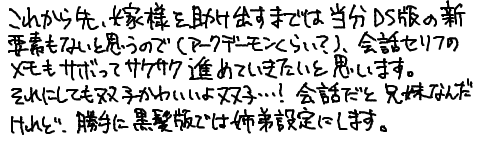 これから先、嫁様を助け出すまでは当分DS版の新
要素もないと思うので(アークデーモンくらい?)、会話セリフの
メモもサボってサクサク進めていきたいと思います。
それにしても双子かわいいよ双子…!会話だと兄妹なんだ
けれど、勝手に黒髪版では姉弟設定にします。